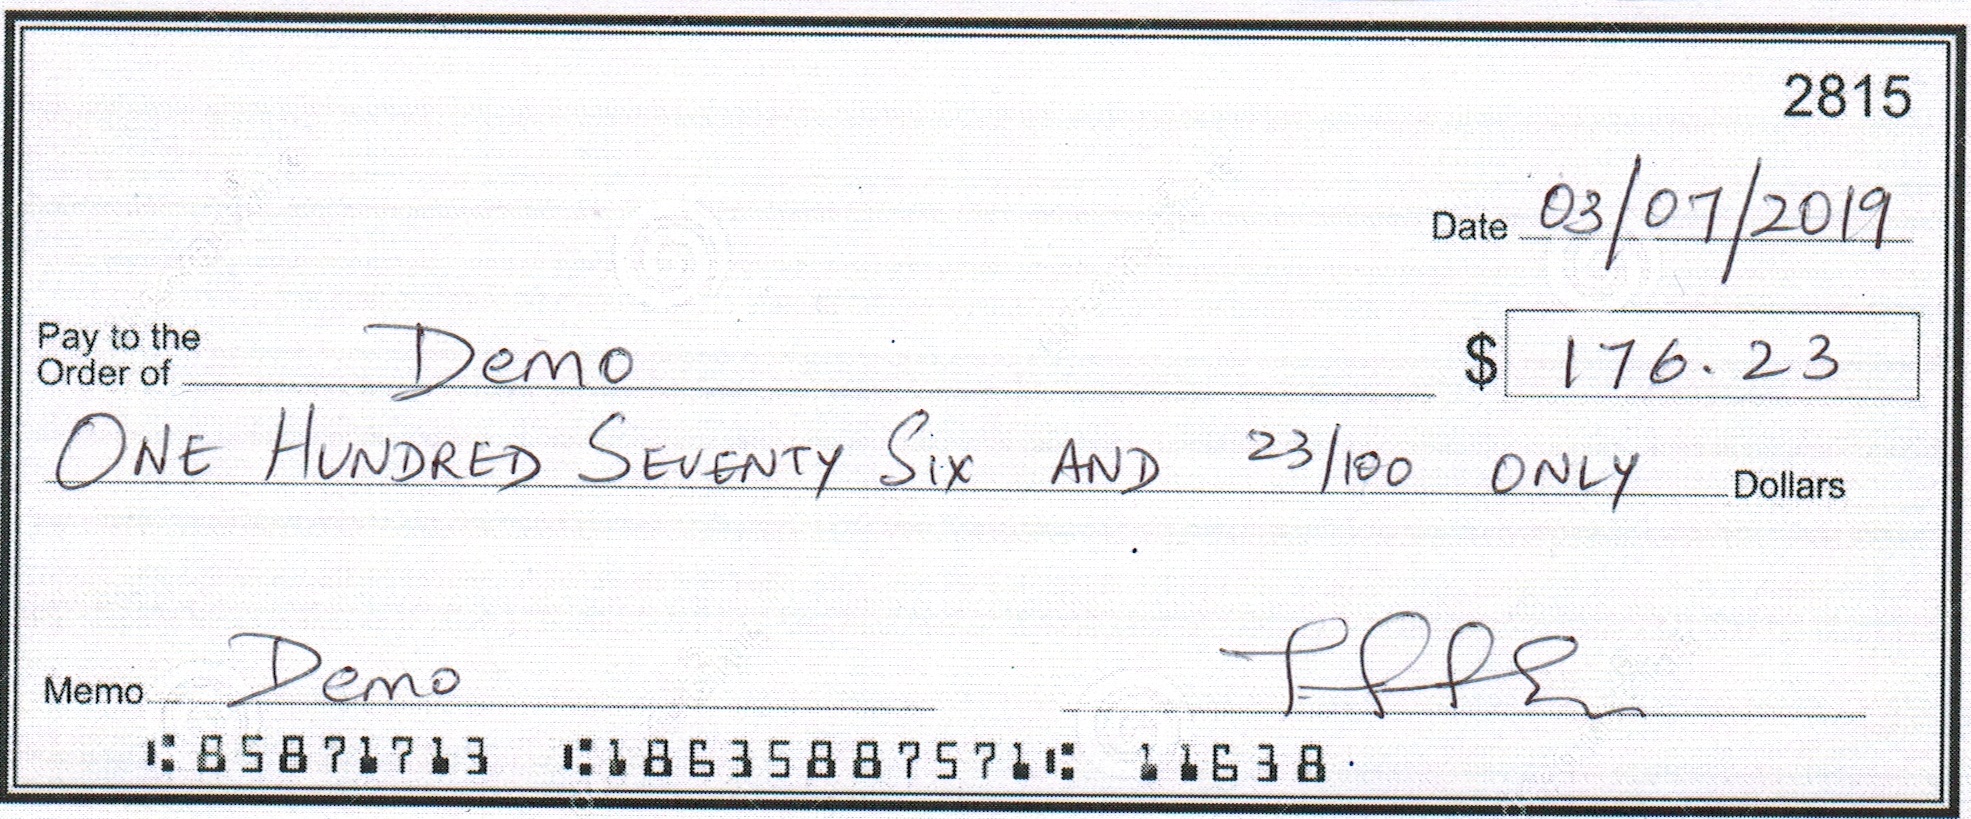 2815
Date 03/07/2019
Pay to the
Order of Demo $ 176.23
ONE HUNDRED SEVENTY SIX AND 23/100 ONLY Dollars
Memo Demo
⑆85871713 ⑆18635887571⑆ 11638